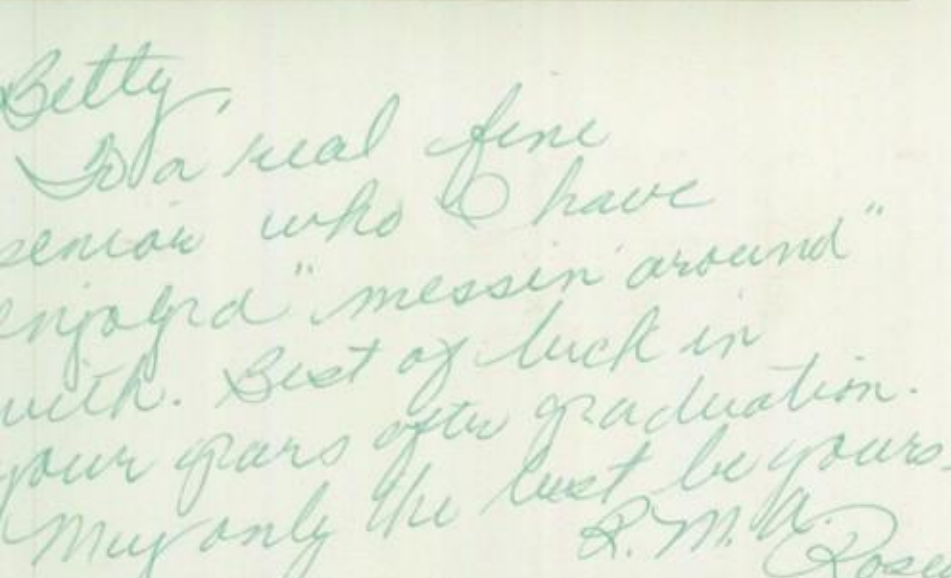 Betty,
To a real fine
senior who I have
enjoyed "messin' around"
with. Best of luck in
your years after graduation.
May only the best be yours
R.M.A.